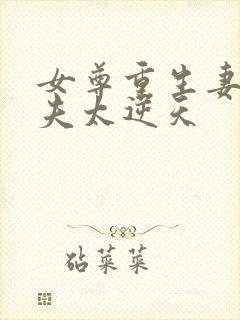 女尊重生妻
夫太逆天
砧菜菜